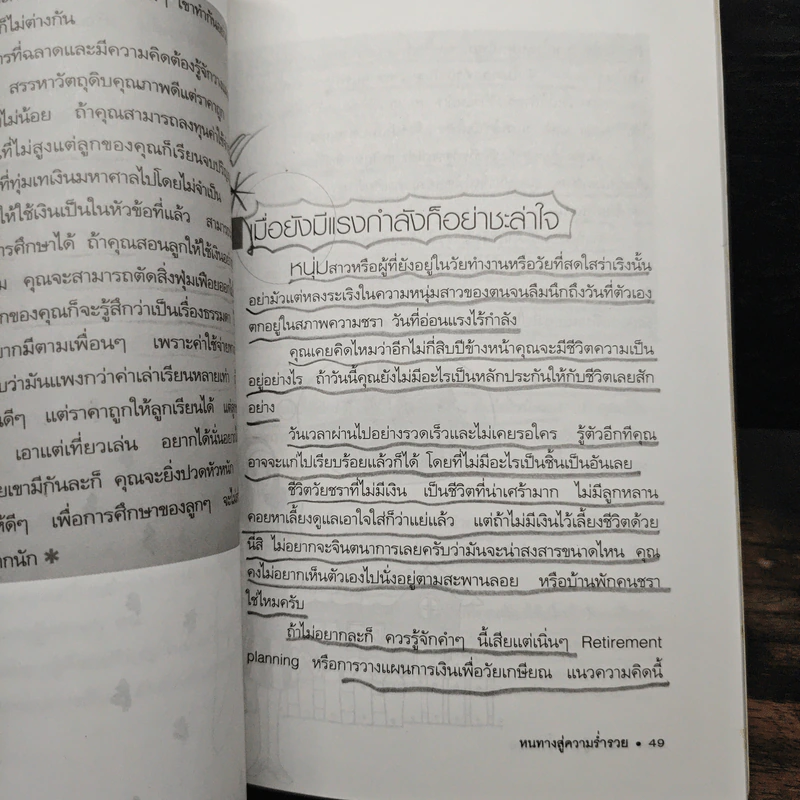 เขาทำกัน
ก็ไม่ต่างกัน
ารที่ฉลาดและมีความคิดต้องรู้จัก
สรรหาวัตถุดิบคุณภาพดีแต่ราคาถูก
ไม่น้อย ถ้าคุณสามารถลงทุนค่าใช้
ที่ไม่สูงแต่ลูกของคุณก็เรียนจบ
ที่ทุ่มเทเงินมหาศาลไปโดยไม่จำเป็น
ให้ใช้เงินเป็นในหัวข้อที่แล้ว
ารศึกษาได้ ถ้าคุณสอนลูกให้ใช้เงิน
คุณจะสามารถตัดสิ่งฟุ่มเฟือย
กของคุณก็จะรู้สึกว่าเป็นเรื่องธรรมดา
ากมีตามเพื่อนๆ เพราะค่าใช้จ่าย
บว่ามันแพงกว่าค่าเล่าเรียนหลายเท่า
นดีๆ แต่ราคาถูกให้ลูกเรียนได้
เอาแต่เที่ยวเล่น อยากได้นั่น
ยเขามีกันละก็ คุณจะยิ่งปวดหัวหนัก
ห้ดีๆ เพื่อการศึกษาของลูกๆ จะไม่
ากนัก
เมื่อยังมีแรงกำลังก็อย่าชะล่าใจ
หนุ่มสาวหรือผู้ที่ยังอยู่ในวัยทำงานหรือวัยที่สดใสร่าเริงนั้น
อย่ามัวแต่หลงระเริงในความหนุ่มสาวของตนจนลืมนึกถึงวันที่ตัวเอง
ตกอยู่ในสภาพความชรา วันที่อ่อนแรงไร้กำลัง
คุณเคยคิดไหมว่าอีกไม่กี่สิบปีข้างหน้าคุณจะมีชีวิตความเป็น
อยู่อย่างไร ถ้าวันนี้คุณยังไม่มีอะไรเป็นหลักประกันให้กับชีวิตเลยสัก
อย่าง
วันเวลาผ่านไปอย่างรวดเร็วและไม่เคยรอใคร รู้ตัวอีกทีคุณ
อาจจะแก่ไปเรียบร้อยแล้วก็ได้ โดยที่ไม่มีอะไรเป็นชิ้นเป็นอันเลย
ชีวิตวัยชราที่ไม่มีเงิน เป็นชีวิตที่น่าเศร้ามาก ไม่มีลูกหลาน
คอยหาเลี้ยงดูแลเอาใจใส่ก็ว่าแย่แล้ว แต่ถ้าไม่มีเงินไว้เลี้ยงชีวิตด้วย
นี่สิ ไม่อยากจะจินตนาการเลยครับว่ามันจะน่าสงสารขนาดไหน คุณ
คงไม่อยากเห็นตัวเองไปนั่งอยู่ตามสะพานลอย หรือบ้านพักคนชรา
ใช่ไหมครับ
ถ้าไม่อยากละก็ ควรรู้จักคำๆ นี้เสียแต่เนิ่นๆ Retirement
planning หรือการวางแผนการเงินเพื่อวัยเกษียณ แนวความคิดนี้
หนทางสู่ความร่ำรวย • 49